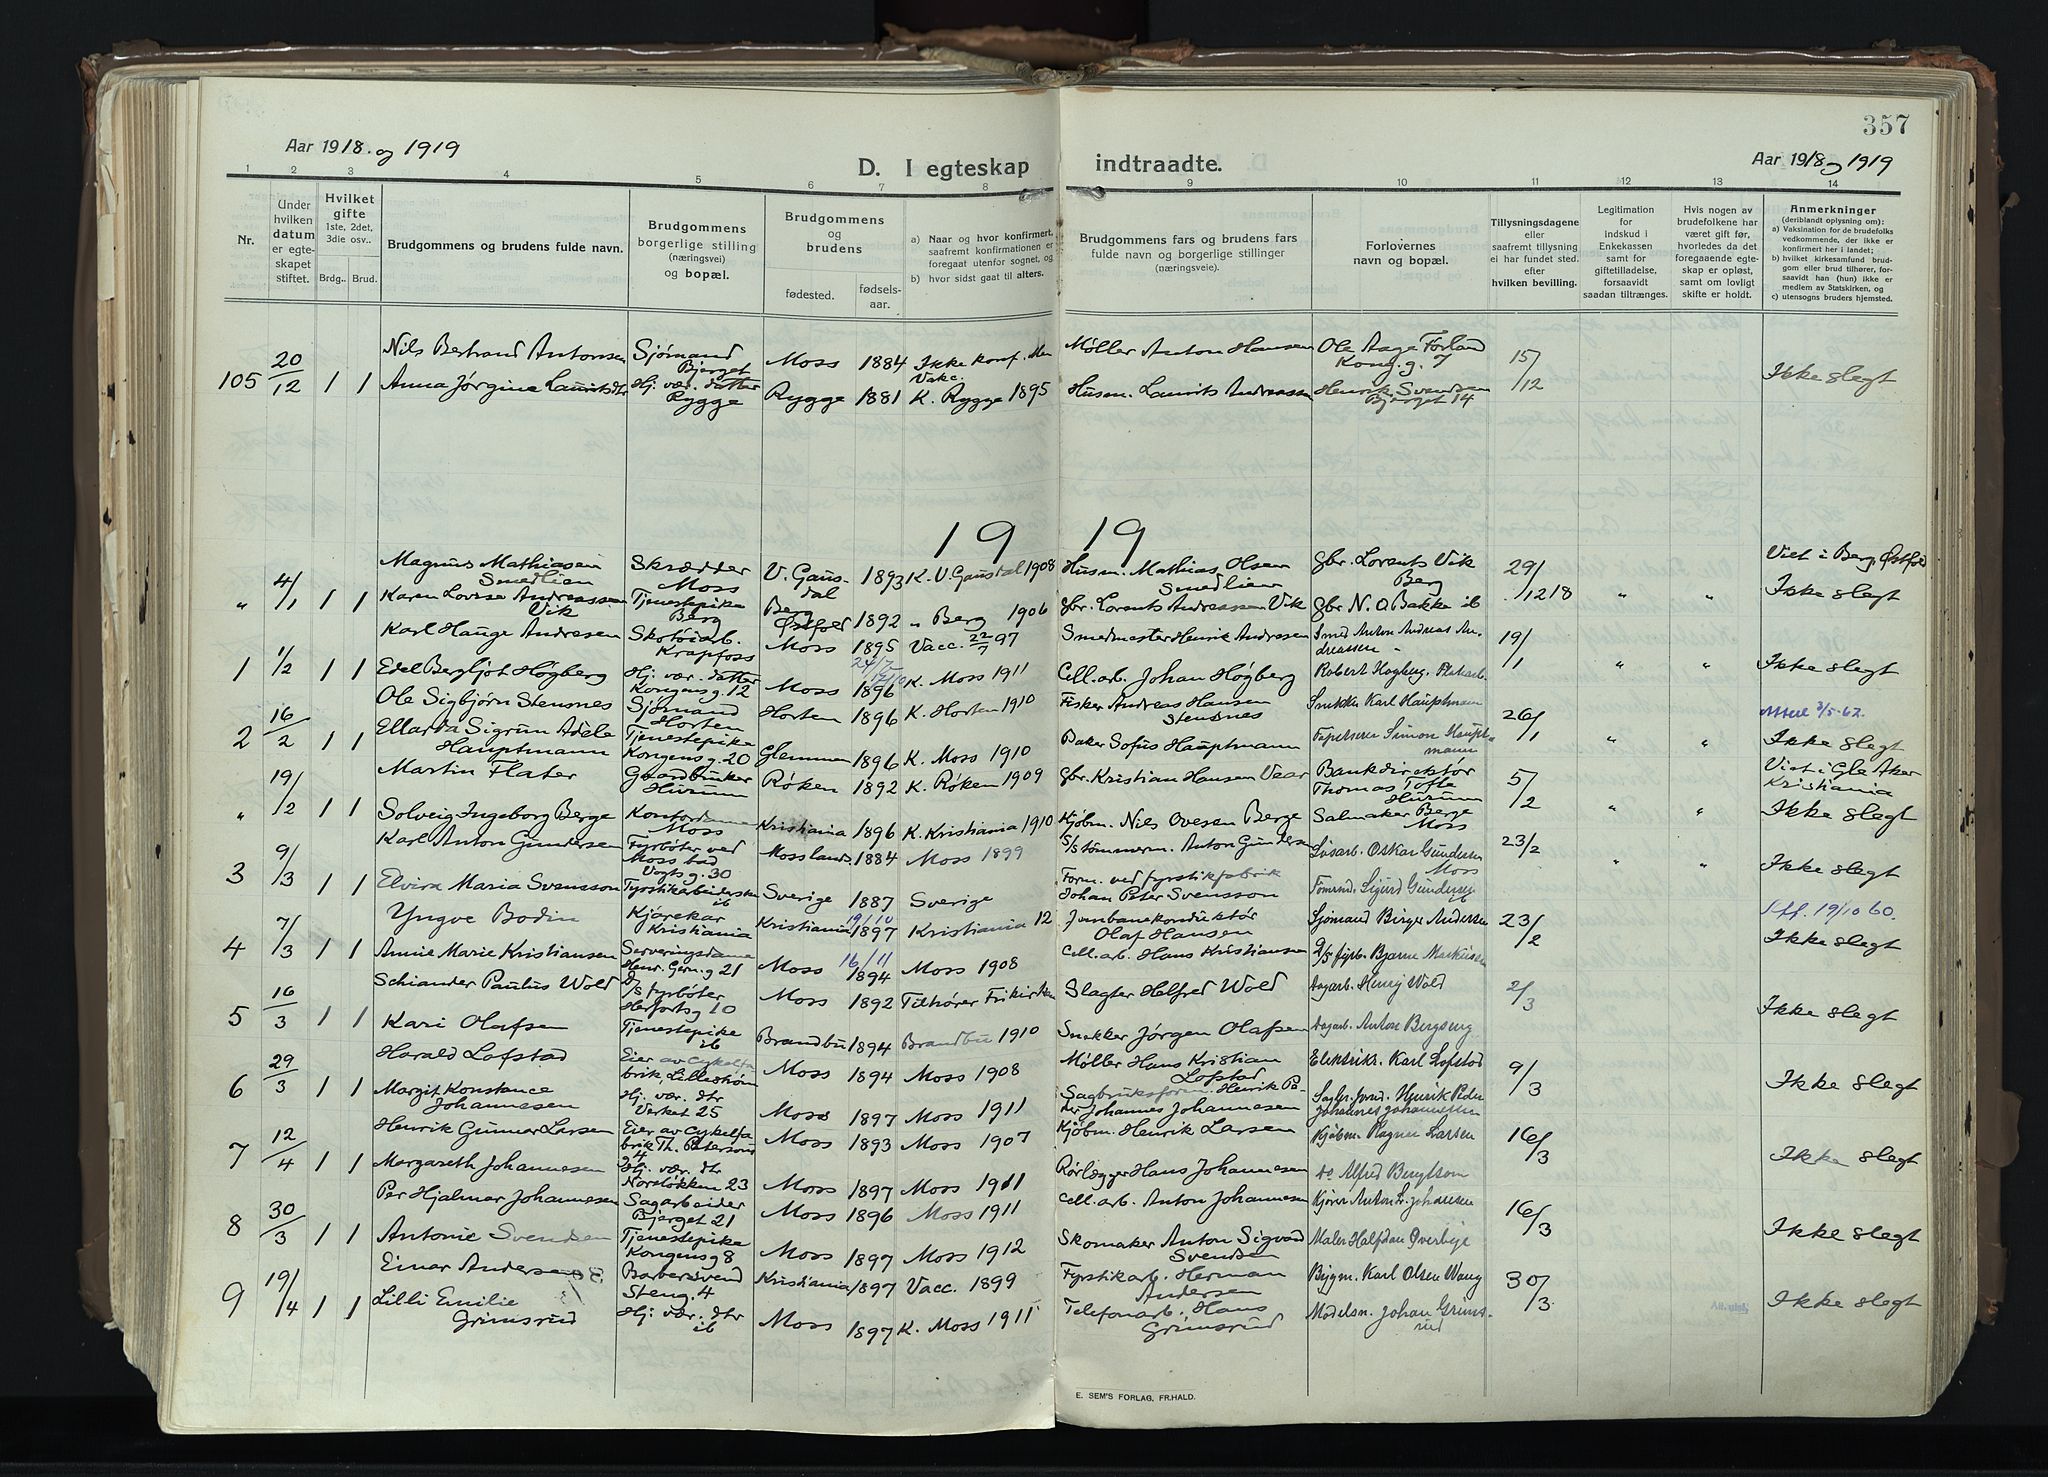 357
Aar 1918. og 1919
D. I egteskap indtraadte.
Aar 1918 og 1919
1 2 3 4 5 6 7 8 9 10 11 12 13 14
Nr.
Under hvilken datum er egte-skapet stiftet.
Hvilket gifte 1ste, 2det, 3die osv..
Brdg.. Brud.
Brudgommens og brudens fulde navn.
Brudgommens borgerlige stilling (næringsvei) og bopæl.
Brudgommens og brudens
fødested. fødsels-aar.
a) Naar og hvor konfirmert, saafremt konfirmationen er foregaat utenfor sognet, og
b) hvor sidst gaat til alters.
Brudgommens fars og brudens fars fulde navn og borgerlige stillinger (næringsveie).
Forlovernes navn og bopæl.
Tillysningsdagene eller saafremt tillysning ei har fundet sted. efter hvilken bevilling.
Legitimation for Indskud i Enkekassen samt for giftetilladelse, forsaavidt saadan tiltrænges.
Hvis nogen av brudefolkene har været gift før, hvorledes da det foregaaende egte-skap er opløst, samt om lovligt skifte er holdt.
Anmerkninger (deriblandt oplysning om):
a) Vaksination for de brudefolks vedkommende, der ikke er konfirmert her i landet;
b) hvilket kirkesamfund brud-gom eller brud tilhører, for-saavidt han (hun) ikke er medlem av Statskirken, og
c) utensogns bruders hjemsted.
105 20/12 1 1 Nils Bertrand Antonsen Sjømand Bjerget Moss 1884 Ikke konf. Men Vakc. Møller Anton Hansen Ole Aage Forland Kong. g. 7 15/12 Ikke slegt
Anna Jørgine Lauritsdtr Hj. vær. datter Rygge Rygge 1881 K. Rygge 1895 Husm. Laurits Andreassen Henrik Svendsen Bjerget 14
19 19
„ 4/1 1 1 Magnus Mathiasen Smedlien Skrædder Moss V. Gaus-dal 1893 K. V. Gausdal 1908 Husm. Mathias Olsen Smedlien Gbr. Lorents Vik Berg 29/12 18 „ „ Viet i Berg, Østfold Ikke slegt
Karen Lovise Andreassen Vik Tjenestepike Berg Berg Østfold 1892 „ Berg 1906 Gbr. Lorents Andreassen Vik Gbr N. O. Bakke ib
1 1/2 1 1 Karl Hauge Andresen Skotøiarb. Krapfoss Moss 1895 Vacc. 22/7 97 Smedmester Henrik Andresen Smed Anton Andreas An-dreassen 19/1 „ „ Ikke slegt
Edel Bergljot Høgberg Hj. vær. datter Kongens g. 12 Moss 1896 K. Moss 1911 Cell. arb. Johan Høgberg Robert Høgberg
2 16/2 1 1 Ole Sigbjørn Stensnes Sjømand Horten Horten 1896 K. Horten 1910 Fisker Andreas Hansen Stensnes Snekker Karl Hauptmann 26/1 „ „ Ikke slegt
Ellarda Sigrun Adele Hauptmann Tjenestepike Kongens g. 20 Glemmen 1896 K. Moss 1910 Baker Sofus Hauptmann Tapetserer Simon Haupt-mann
„ 19/2 1 1 Martin Flater Gaardbruker Hurum Røken 1892 K. Røken 1909 Gbr. Kristian Hansen Vear Bankdirektør Thomas Tofte Hurum 5/2 „ „ Viet i Gle Aker Kristiania Ikke slegt
Solveig Ingeborg Berge Kontordame Moss Kristiania 1896 K. Kristiania 1910 Kjøbm. Nils Ovesen Berge Salmaker Berge Moss
3 9/3 1 1 Karl Anton Gundersen Fyrbøter ved Moss bad Vogts g. 30 Moss lands. 1884 Moss 1899 S/s tømmerm. Anton Gundersen Løsarb. Oskar Gundersen Moss 23/2 „ „ Ikke slegt
Elvira Maria Svensson Fyrstikarbeiderske ib Sverige 1887 Sverige Form. ved fyrstikfabrik Johan Peter Svensson Sigurd Gundersen
4 7/3 1 1 Yngve Bodin Kjørekar Kristiania Kristiania 19/10 1897 Kristiania 12 Jernbanekonduktør Olaf Hansen Sjømand Birger Andersen 23/2 19/10 60. Ikke slegt
Annie Marie Kristiansen Serveringsdame Henr. Gern. g 21 Moss 16/11 1894 Moss 1908 Cell. arb. Hans Kristiansen D/s fyrb. Bjarne Markussen
5 16/3 1 1 Schiander Paulus Wold D/s fyrbøter Herfortsg 10 Moss 1892 Tilhører Frikirken Slagter Helfred Wold Dagarb. Henry Wold 2/3 Ikke slegt
Kari Olafsen Tjenestepike ib Brandbu 1894 Brandbu 1910 Snekker Jørgen Olafsen Dagarb. Anton Bergseng
6 29/3 1 1 Harald Lofstad Eier av Cykelfa-brik, Lillestrøm Moss 1894 Moss 1908 Møller Hans Kristian Lofstad Elektrik. Karl Lofstad 9/3 Ikke slegt
Margit Konstance Johannesen Hj. vær. dtr Verket 25 Moss 1897 Moss 1911 Sagbruksform. Henrik Pe-der Johannes Johannesen Sagbr. form. Henrik Peder Johannes Johannesen
7 12/4 1 1 Henrik Gunnar Larsen Eier av Cykelfa-brik Th. Petersons g 4 Moss 1893 Moss 1907 Kjøbm. Henrik Larsen Kjøbm. Ragnar Larsen 16/3 Ikke slegt
Margareth Johannesen Hj. vær. dtr Norsløkken 23 Moss 1897 Moss 1911 Rørlegger Hans Johannesen do Alfred Bengtson
8 30/3 1 1 Per Hjalmar Johannesen Sagarbeider Bjerget 21 Moss 1896 Moss 1911 Cell. arb. Anton Johannesen Kjører Anton Fr. Johansen 16/3 Ikke slegt
Antonie Svendsen Tjenestepike Kongens g 8 Moss 1897 Moss 1912 Skomaker Anton Sigvard Svendsen Maler Halfdan Overbye
9 19/4 1 1 Einar Andersen Barbersvend Steng. 4 Kristiania 1897 Vacc. 1899 Fyrstikarb. Herman Andersen Bygm. Karl Olsen Wang 30/3 Ikke slegt
Lilli Emilie Grimsrud Hj. vær. dtr ib Moss 1897 K. Moss 1911 Telefonarb. Hans Grimsrud Modelsn. Johan Grims-rud
E. SEM'S FORLAG, FR.HALD.